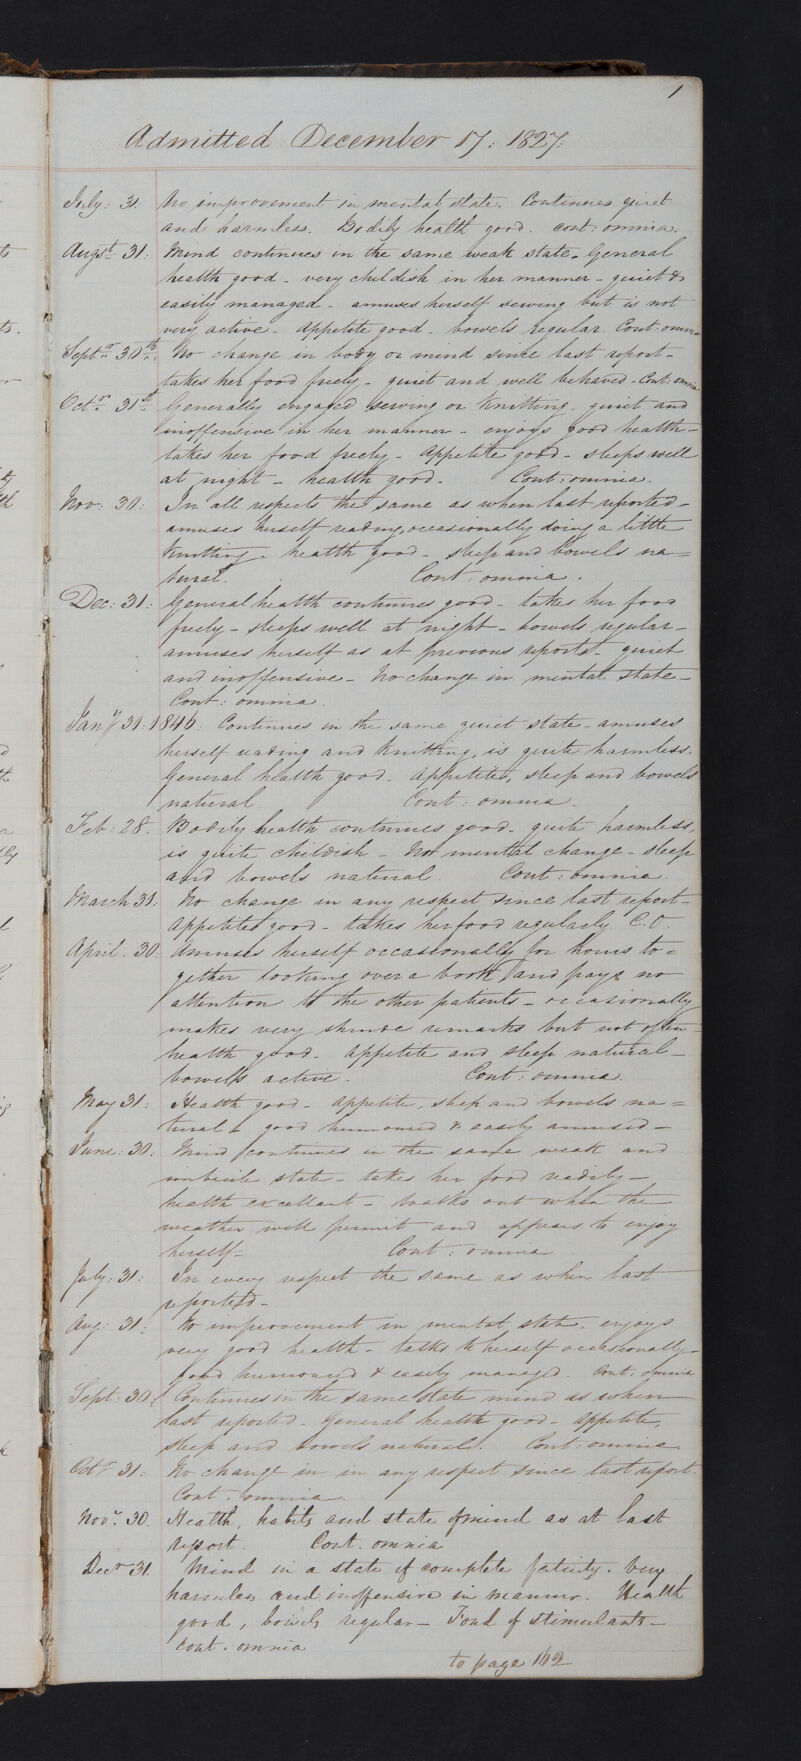 1
Admitted December 17: 1827.
July: 31. No improvement in mental state. Continues quiet
and harmless. Bodily health good. Cont: omnia.
Augst. 31: Mind continues in the same weak state. General
health good - very childish in her manner - quiet &
easily managed - amuses herself sewing but is not
very active - appetite good - bowels regular. Cont: omnia
Septr. 30th: No change in body or mind since last report -
takes her food freely - quiet and well behaved - Cont: omnia
Octr. 31st Generally engaged sewing or knitting. quiet and
inoffensive in her manner - enjoys good health -
takes her food freely - Appetite good - sleeps well
at night - health good. Cont: omnia.
Nov: 30: In all respects the same as when last reported -
amuses herself reading, occasionally doing a little
knitting - health good - sleep and bowels na=
tural. Cont: omnia.
Dec: 31: General health continues good - takes her food
freely - sleeps well at night - bowels regular -
amuses herself as at previous reports - quiet
and inoffensive - No change in mental state -
Cont: omnia.
Jany 31: 1846: Continues in the same quiet state - amuses
herself reading and knitting, is quite harmless.
General health good. Appetite, sleep and bowels
natural. Cont: omnia.
Feb: 28. Bodily health continues good - quite harmless,
is quite childish - No mental change - sleep
and bowels natural. Cont: omnia.
March 31: No change in any respect since last report -
Appetite good - takes her food regularly. C. O.
April. 30: Amuses herself occasionally for hours to=
gether looking over a book, and pays no
attention to the other patients - occasionally
makes very shrude remarks but not often
health good - appetite and sleep natural -
bowels active. Cont: omnia.
May 31: Health good - appetite, sleep and bowels na=
tural & good humoured & easily amused -
June: 30: Mind continues in the same weak and
imbecile state - takes her food readily -
health excellent - walks out when the
weather will permit and appears to enjoy
herself - Cont: omnia.
July: 31: In every respect the same as when last
reported -
Aug: 31: No improvement in mental state. enjoys
very good health - talks to herself occasionally -
good humoured & easily managed. Cont: omnia
Sept: 30: Continues in the same state mind as when
last reported - General health good - Appetite,
sleep and bowels natural. Cont: omnia
Octr 31: No change in in any respect since last report.
Cont: omnia.
Novr. 30. Health, habits and state of mind as at last
report. Cont. omnia
Decr 31. Mind in a state of complete fatuity. Very
harmless and inoffensive in manner. Health
good, bowels regular - Fond of stimulants -
Cont. omnia
to page 162